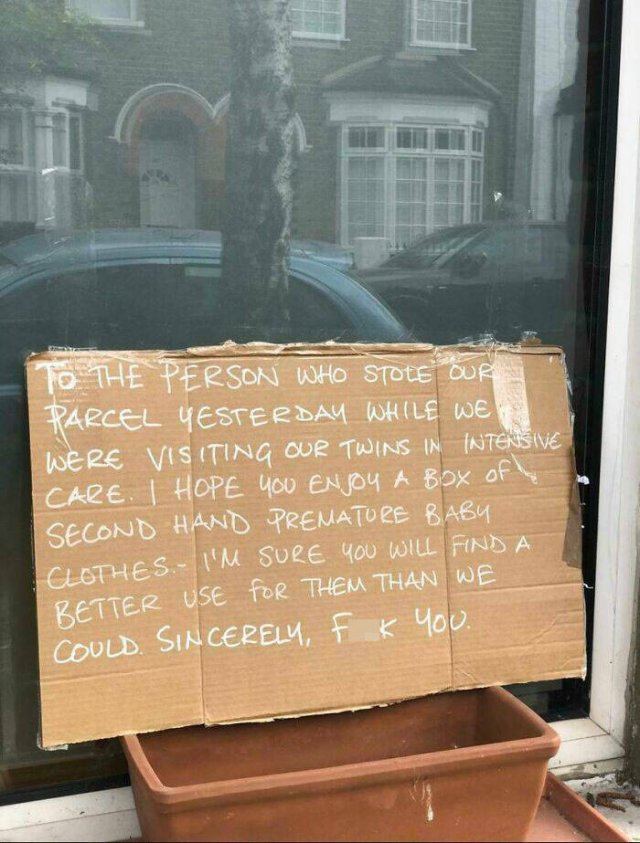 TO THE PERSON WHO STOLE OUR
PARCEL YESTERDAY WHILE WE
WERE VISITING OUR TWINS IN INTENSIVE
CARE. I HOPE YOU ENJOY A BOX OF
SECOND HAND PREMATURE BABY
CLOTHES.- I'M SURE YOU WILL FIND A
BETTER USE FOR THEM THAN WE
COULD. SINCERELY, F K YOU.